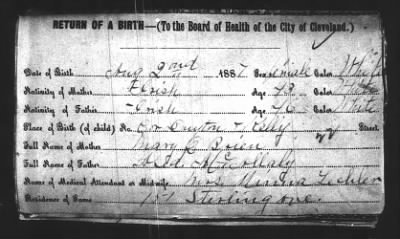 RETURN OF A BIRTH—(To the Board of Health of the City of Cleveland.)
Date of Birth Aug 2nd 1887 Sex Female Color White
Nativity of Mother Irish Age 43 Color White
Nativity of Father Irish Age 46 Color White
Place of Birth (of child) No. Cor Street.
Full Name of Mother Mary O Brien
Full Name of Father
Name of Medical Attendant or Midwife Mrs
Residence of Same 157 Sterling ave.